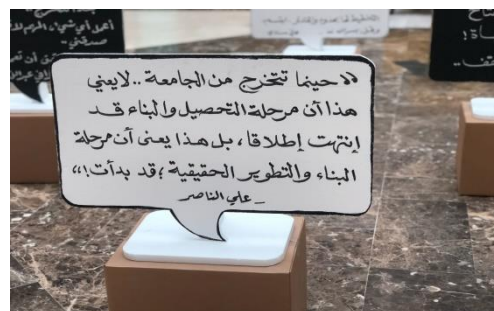 " حينما تتخرج من الجامعة .. لايعني
هذا أن مرحلة التحصيل والبناء قد
إنتهت إطلاقا ، بل هذا يعنى أن مرحلة
البناء والتطوير الحقيقية ؛ قد بدأت ! "
_ علي الناصر